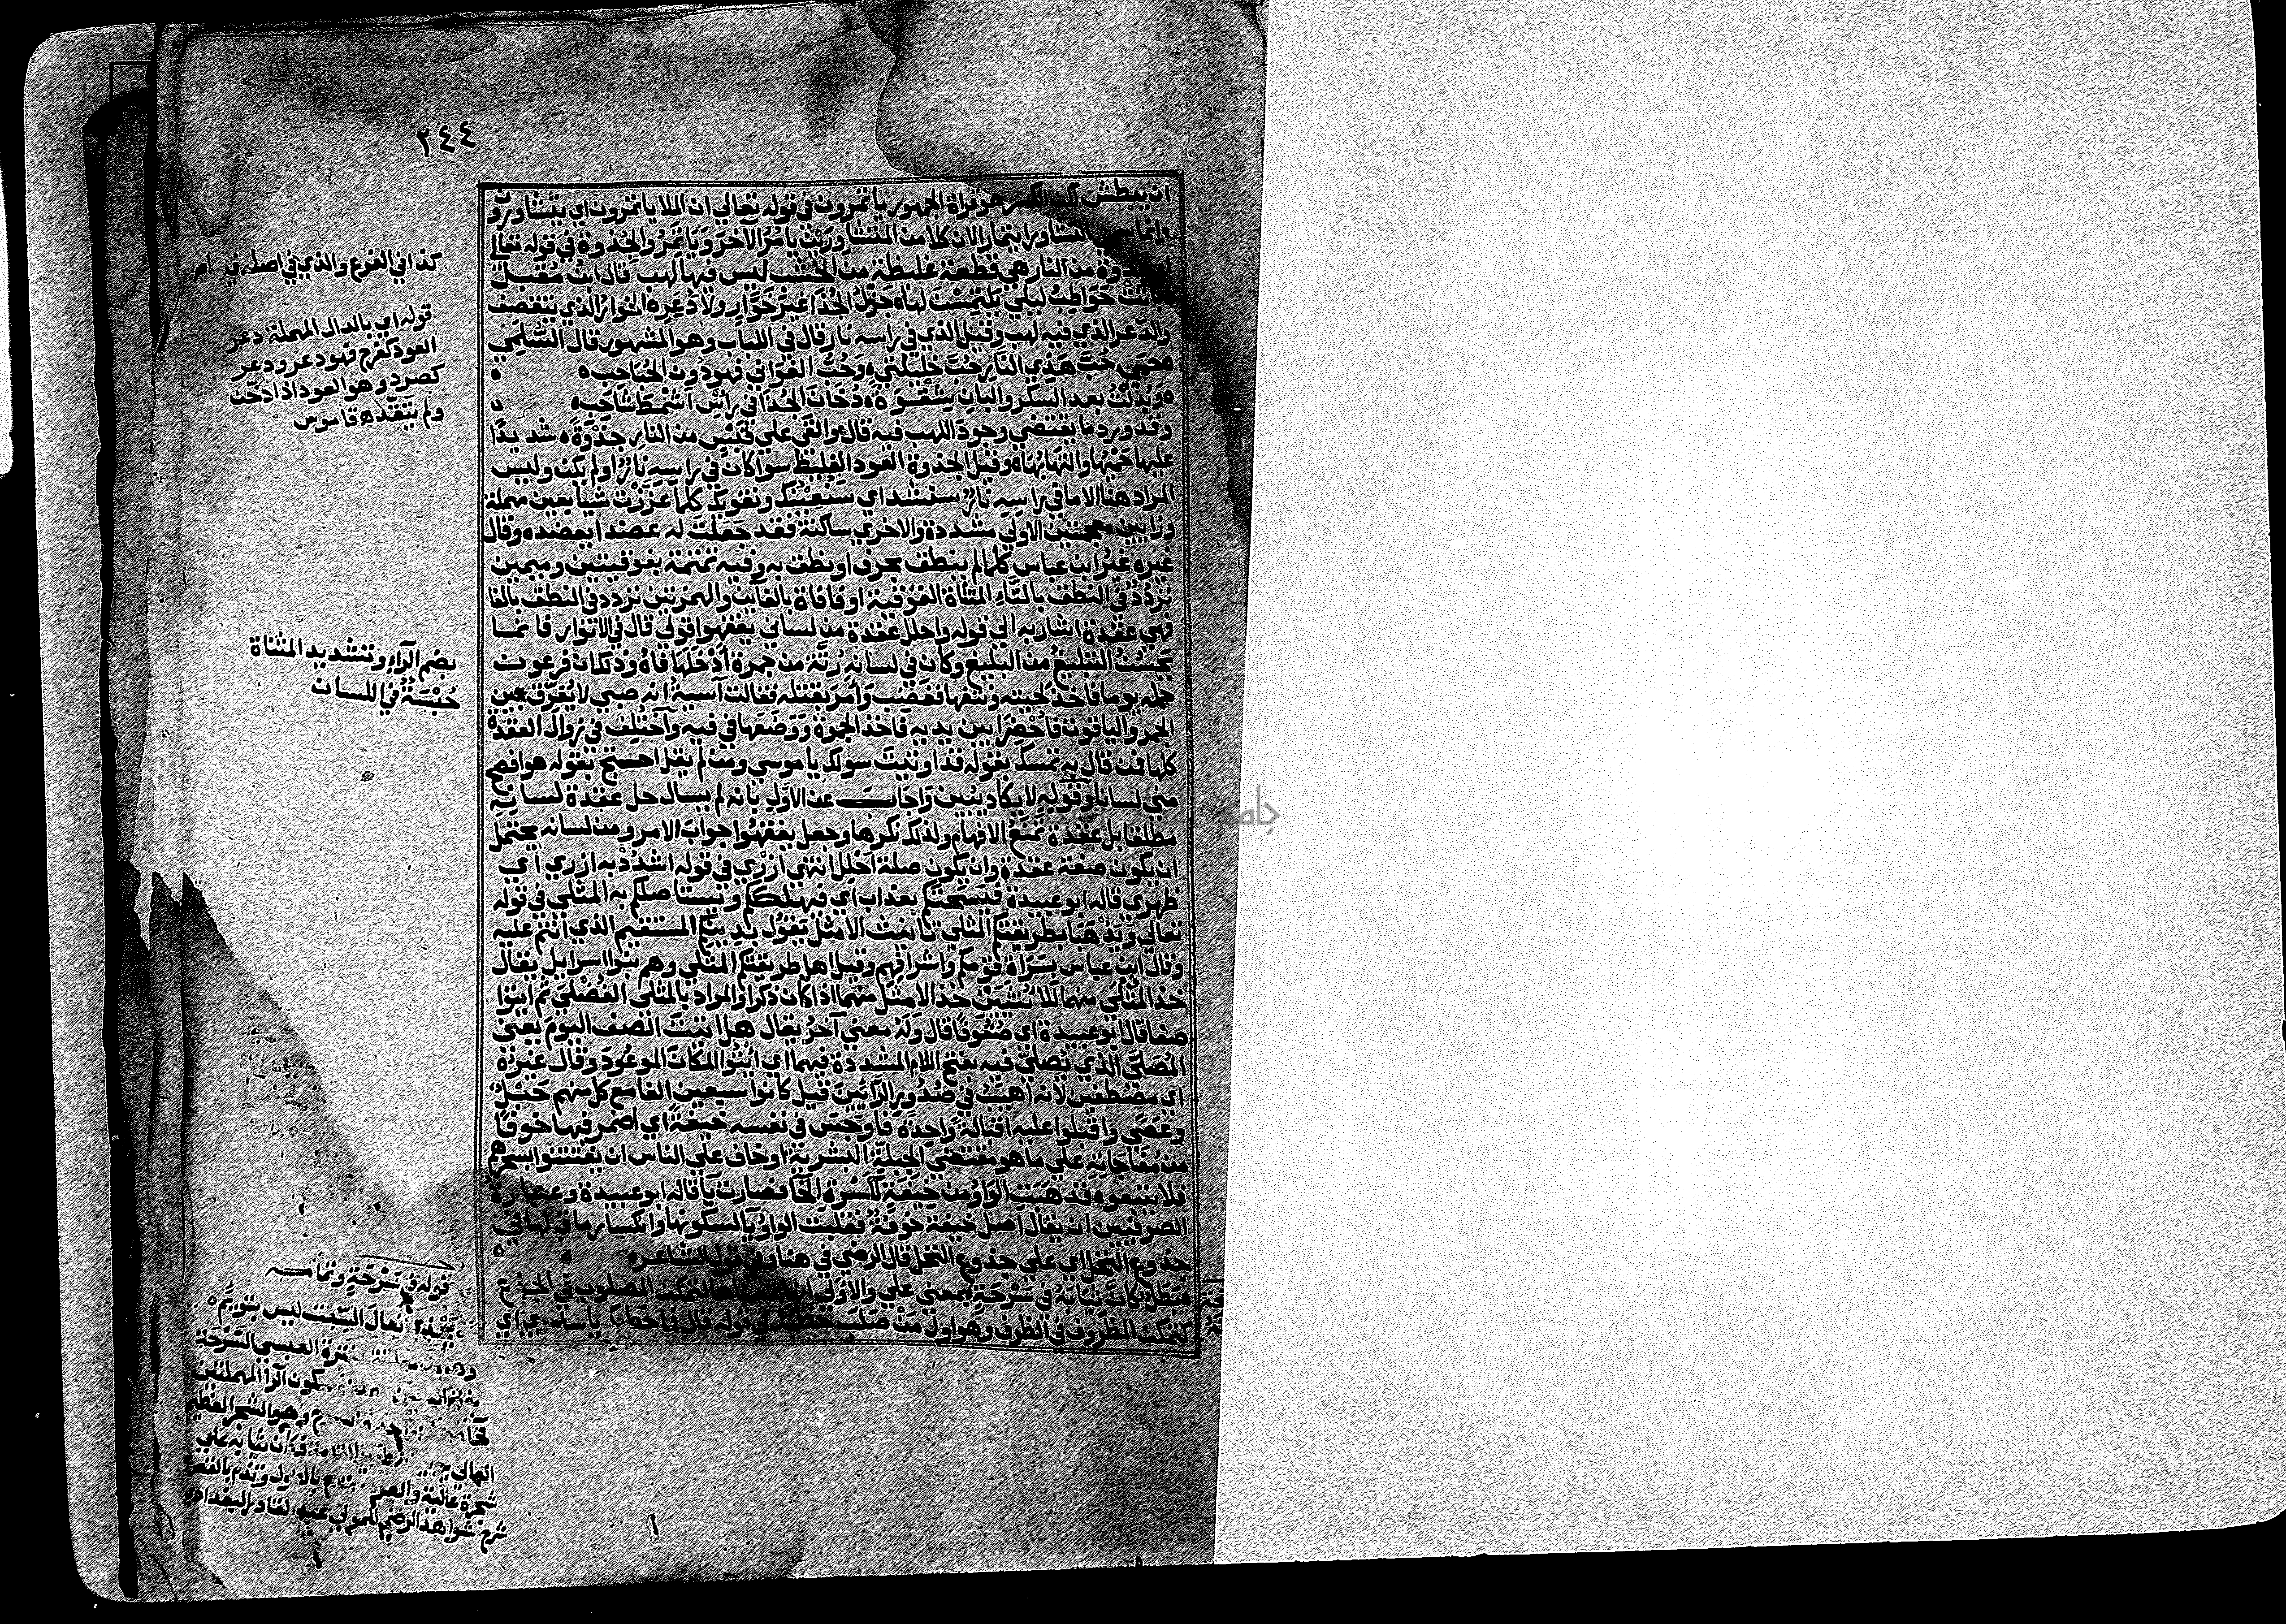 ٢٤٤
ان يبطش لكن الكسر هو قراة الجمهور ياتمرون في قوله تعالي ان الملا ياتمرون اي يتشاورون
وانما سمي التشاور ايتمارا لان كلا من المتشاورين يامر الاخر وياتمر والجذوة في قوله تعالي
او جذوة من النار هي قطعة غليظة من الخشب ليس فيها لهب قال ابن مقبل
باتت حواطب ليلي يلتمسن لها ه جزل الجذا غير خوار ولا دعر ه الخوار الذي يتقصف
والدعر الذي فيه لهب وقيل الذي في راسه نار قال في اللباب وهو المشهور قال السلمي
حمي حب هذي النار حب خليلتي ه وحب الغواني فهو دون الحباحب ه
ه وبدلت بعد السكر والبان شقوة ه دخان الجذا في راس اشمط شاحب ه
وقد ورد ما يقتضي وجود اللهب فيه قال ه والقي علي قبس من النار جذوة ه شديدا
عليها حميها والتهابها ه وقيل الجذوة العود الغليظ سوا كان في راسه نار او لم يكن وليس
المراد هنا الا ما في راسه نار سنشد اي سنعينك ونقويك كلما عززت شيا بعين مهملة
وزايين معجمتين الاولي مشددة والاخري ساكنة فقد جعلت له عضدا يعضده وقال
غيره غير ابن عباس كلما لم ينطق بحرف او نطق به وفيه تمتمة بفوقيتين وميمين
تردد في النطق بالتاء المثناة الفوقية او فافاة بالفاين والهمزتين تردد في النطق بالفا
فهي عقدة اشار به الي قوله واحلل عقدة من لساني يفقهوا قولي قال في الانوار فانما
يحسن التبليغ من البليغ وكان في لسانه رتة من جمرة ادخلها فاه وذلك ان فرعون
حمله يوما فاخذ لحيته ونتفها فغضب وامر بقتله فقالت آسية انه صبي لا يفرق بين
الجمر والياقوت فاحضرا بين يديه فاخذ الجمرة ووضعها في فيه واختلف في زوال العقدة
كلها فمن قال به تمسك بقوله قد اوتيت سولك ياموسي ومن لم يقل احتج بقوله هو افصح
مني لسانا وقوله لا يكاد يبين واجاب عن الاول بانه لم يسال حل عقدة لسانه
مطلقا بل عقدة تمنع الافهام ولذلك نكرها وجعل يفقهوا جواب الامر ومن لسانه يحتمل
ان يكون صفة عقدة وان يكون صلة احلل انتهي ازري في قوله اشدد به ازري اي
ظهري قاله ابو عبيدة فيسحتكم بعذاب اي فيهلككم ويستاصلكم به المثلي في قوله
تعالي ويذهبا بطريقتكم المثلي تانيث الامثل يقول بدينكم المستقيم الذي انتم عليه
وقال ابن عباس بسراة قومكم واشرافهم وقيل اهل طريقتكم المثلي وهم بنوا اسرايل يقال
خذ المثلي منهما للانثيين خذ الامثل منهما اذا كان ذكرا والمراد بالمثلي الفضلي ثم ايتوا
صفا قال ابو عبيدة اي صفوفا قال وله معني آخر يقال هل اتيت الصف اليوم يعني
المصلي الذي يصلي فيه بفتح اللام المشددة فيهما اي ايتوا المكان الموعود وقال غيره
اي مصطفين لانه اهيب في صدور الرائين قيل كانوا سبعين الفا مع كل منهم حبل
وعصي واقبلوا عليه اقبالة واحدة فاوجس في نفسه خيفة اي اضمر فيها خوفا
من مفاجاته علي ما هو مقتضي الجبلة البشرية او خاف علي الناس ان يفتتنوا بسحرهم
فلا يتبعوه فذهبت الواو من خيفة لكسرة الخا فصارت يا قاله ابو عبيدة وعبارة
الصرفيين ان يقال اصل خيفة خوفة فقلبت الواو يا لسكونها وانكسار ما قبلها في
جذوع النخل اي علي جذوع النخل قال الرضي في هنا وفي قول الشاعر ه
بطل كان ثيابه في سرحة بمعني علي والاولي انها بمعناها لتمكن المصلوب في الجذع
كتمكن المظروف في الظرف وهو اول من صلب خطبك في قوله قال فما خطبك يا سامري اي
كذا في الفرع والذي في اصله فيه اه
قوله اي بالدال المهملة دعر
العود كفرح فهو دعر ودعر
كصرد وهو العود اذا دخن
ولم يتقد ه قاموس
بضم الراء وتشديد المثناة
حبسة في اللسان
قوله في سرحة وتمامه
يحذي نعال السبت ليس بتوءم ه
عنترة العبسي السرحة
سكون الرا المهملتين
وهو الشجر العظيم
العالي فكان ثيابه علي
شجرة عالية
شرح شواهد الرضي للمولي عبد القادر البغدادي